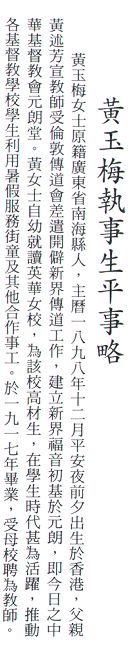 黃玉梅執事生平事略
黃玉梅女士原籍廣東省南海縣人，主曆一八九八年十二月平安夜前夕出生於香港，父親
黃述芳宣教師受倫敦傳道會差遣開僻新界傳道工作，建立新界福音初基於元朗，即今日之中
華基督教會元朗堂。黃女士自幼就讀英華女校，為該校高材生，在學生時代甚為活躍，推動
各基督教學校學生利用暑假服務街童及其他合作事工。於一九一七年畢業，受母校聘為教師。